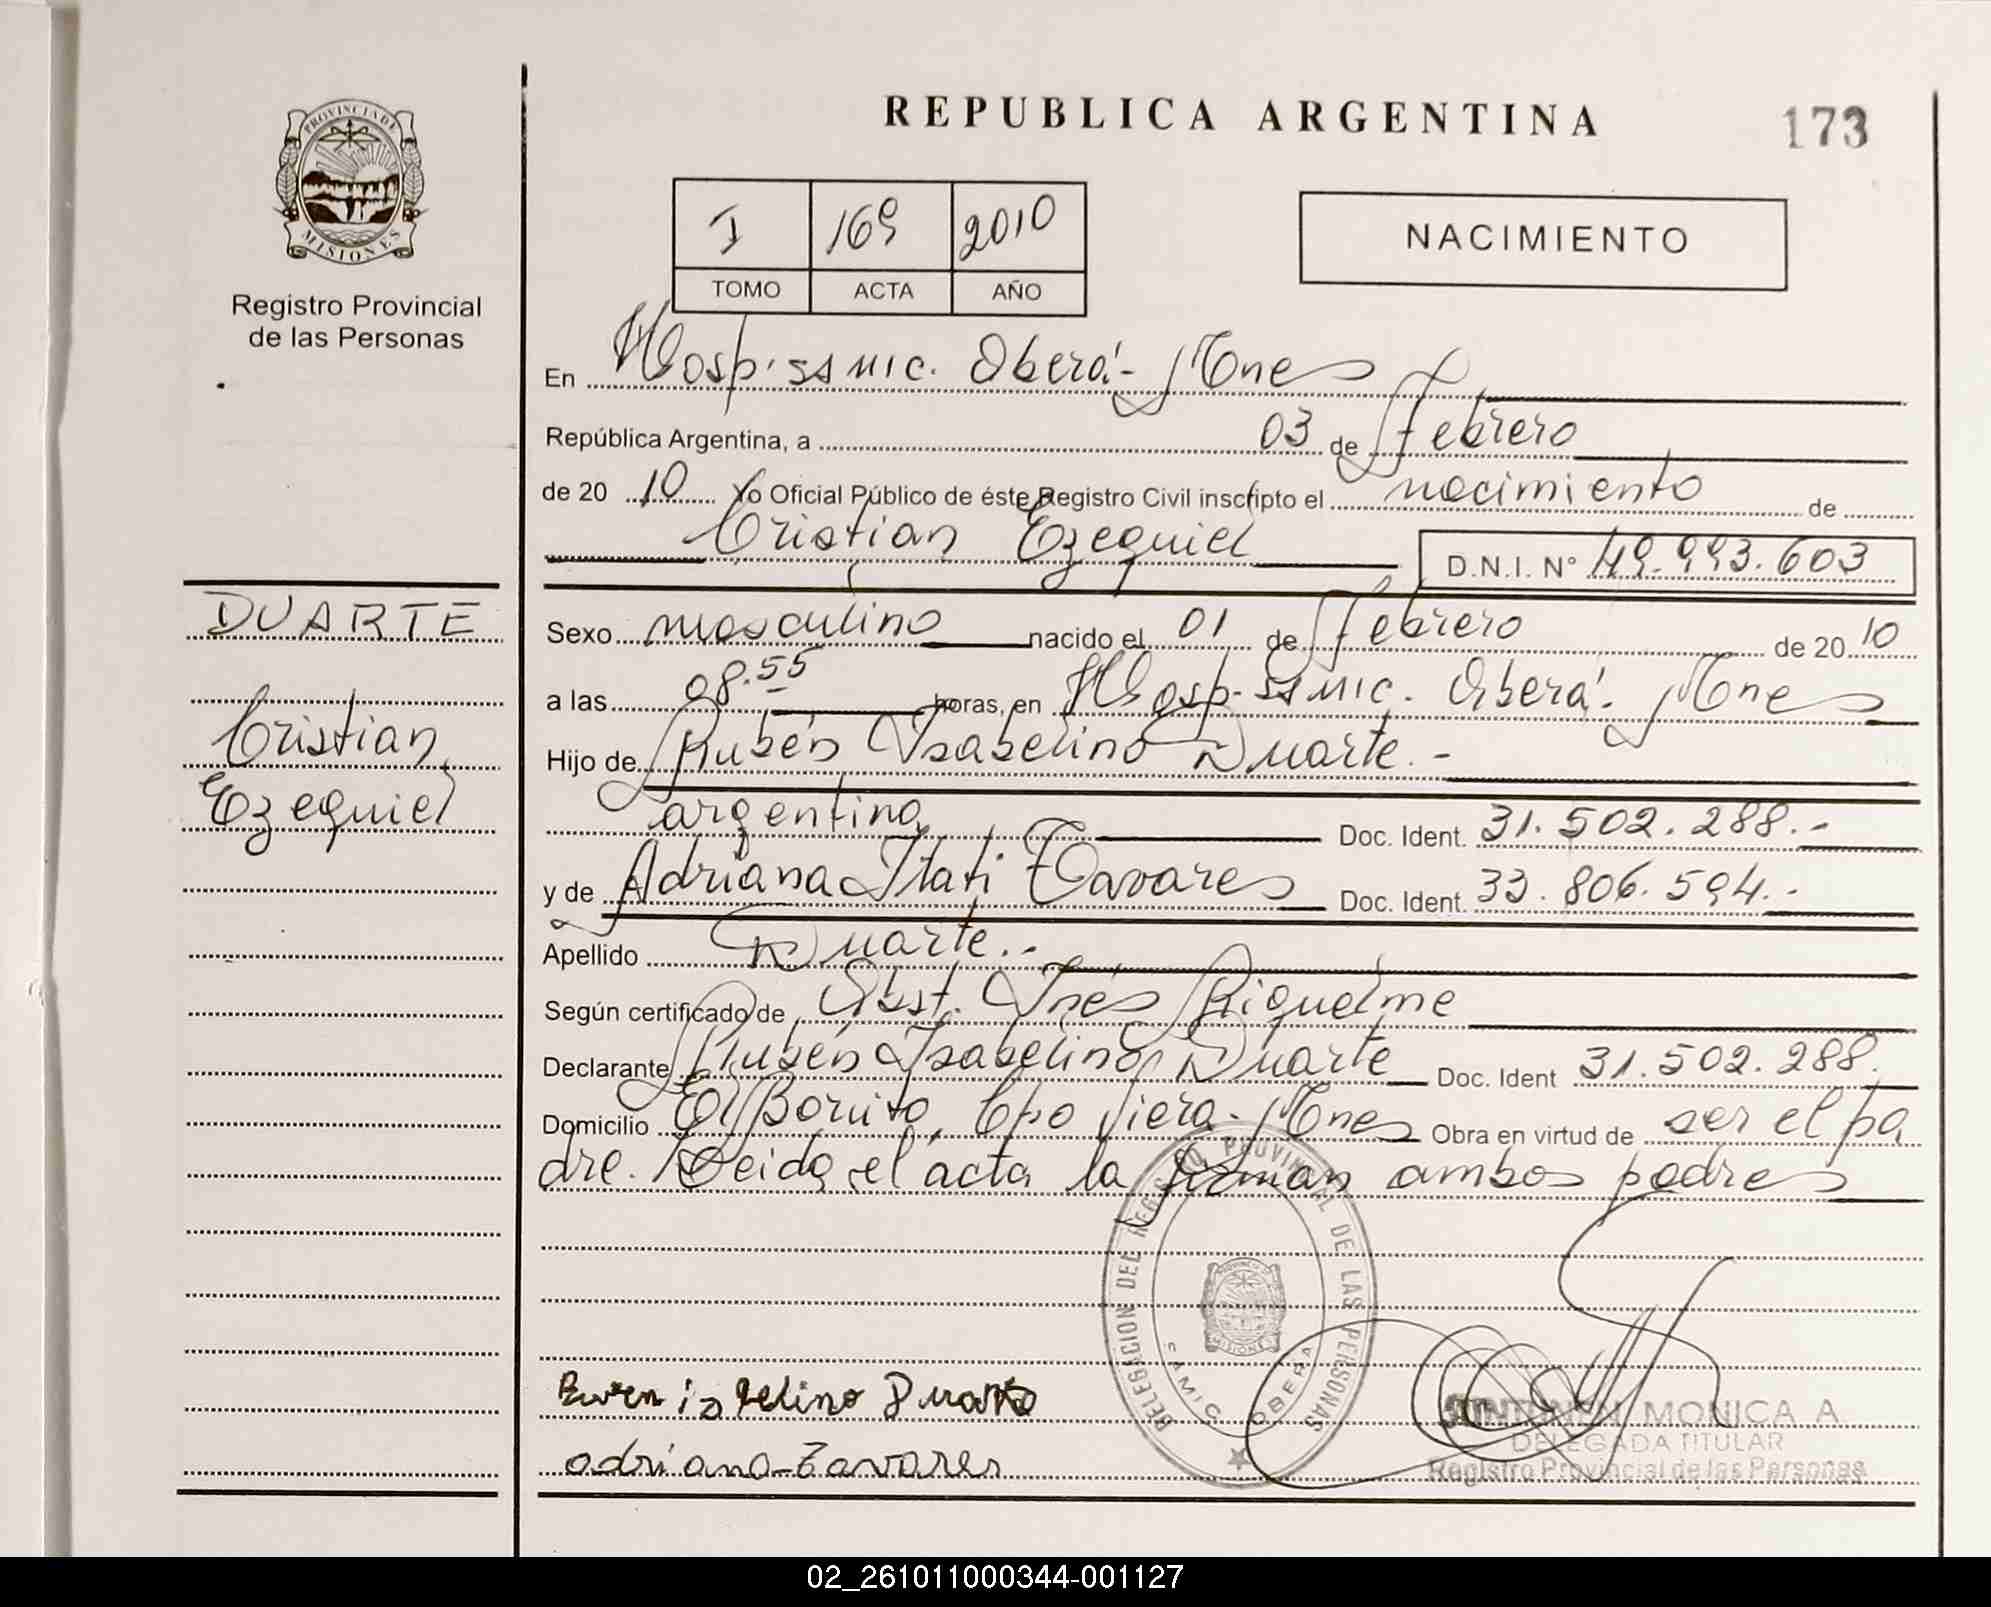 REPUBLICA ARGENTINA
173
PROVINCIA DE
MISIONES
Registro Provincial
de las Personas
I 169 2010
TOMO ACTA AÑO
NACIMIENTO
En Hosp. SAMIC. Oberá - Mnes
República Argentina, a 03 de Febrero
de 20 10 Yo Oficial Público de éste Registro Civil inscripto el nacimiento de
Cristian Ezequiel D.N.I. N° 49.993.603
DUARTE
Cristian
Ezequiel
Sexo masculino nacido el 01 de Febrero de 20 10
a las 08.55 horas, en Hosp. SAMIC. Oberá. Mnes
Hijo de Rubén Isabelino Duarte.-
argentina Doc. Ident. 31.502.288.-
y de Adriana Itati Tavares Doc. Ident. 33.806.594.-
Apellido Duarte.-
Según certificado de Obst. Inés Riquelme
Declarante Rubén Isabelino Duarte Doc. Ident 31.502.288.
Domicilio El Bonito, Cpo Viera - Mnes Obra en virtud de ser el pa
dre. Leida el acta la firman ambos padres
DELEGACION DEL REGISTRO PROVINCIAL DE LAS PERSONAS
SAMIC OBERA
MISIONES
Duarte
adriana Tavares
MONICA A
DELEGADA TITULAR
Registro Provincial de las Personas
02_261011000344-001127